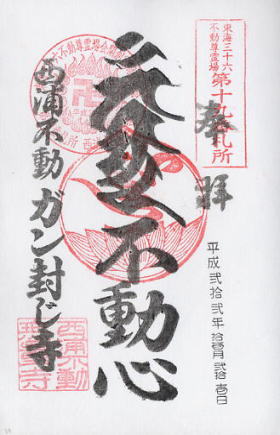 東海三十六
不動尊霊場
第十九番札所
奉拝
平成弐拾弐年拾壱月弐拾壱日
不動心
西浦不動ガン封じ寺
西浦不動
無量寺